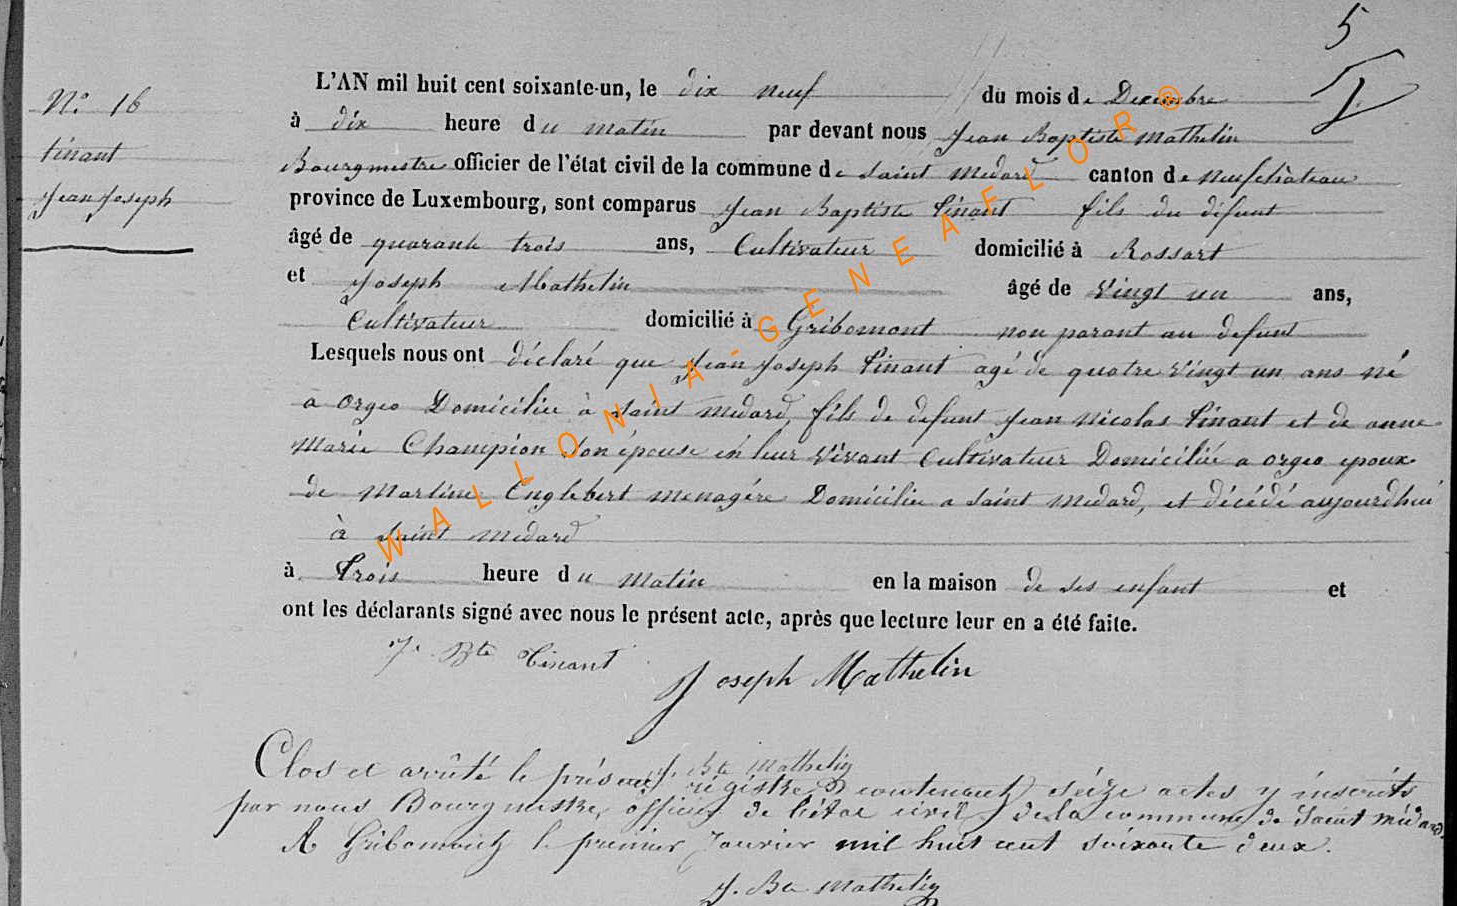 5
N° 16
tinant
Jean Joseph
L'AN mil huit cent soixante-un, le dix neuf du mois de Decembre
à dix heure du matin par devant nous Jean Baptiste Mathelin
Bourgmestre officier de l'état civil de la commune de Saint Medard canton de neufchâteau
province de Luxembourg, sont comparus Jean Baptiste tinant fils du défunt
âgé de quarante trois ans, Cultivateur domicilié à Rossart
et Joseph Mathelin âgé de Vingt un ans,
Cultivateur domicilié à Gribomont non parant au defunt
Lesquels nous ont déclaré que Jean Joseph tinant agé de quatre Vingt un ans né
a Orgeo Domiciliée à Saint Medard, fils de defunt Jean Nicolas tinant et de anne
Marie Champion son épouse en leur Vivant Cultivateur Domiciliée a orgeo epoux
de Martine Englebert menagére Domiciliée a Saint Medard, et décédé aujourdhui
à Saint Medard
à trois heure du Matin en la maison de ses enfant et
ont les déclarants signé avec nous le présent acte, après que lecture leur en a été faite.
J. Bte tinant
Joseph Mathelin
J. Bte Mathelin
Clos et arrêté le présent régistre contenant seize actes y inscrits
par nous Bourgmestre, officier de l'état civil de la commune de Saint Médard
A Gribomont le premier Janvier mil huit cent soixante deux.
J. Bte Mathelin
WALLONIA-GENEAFLOR®